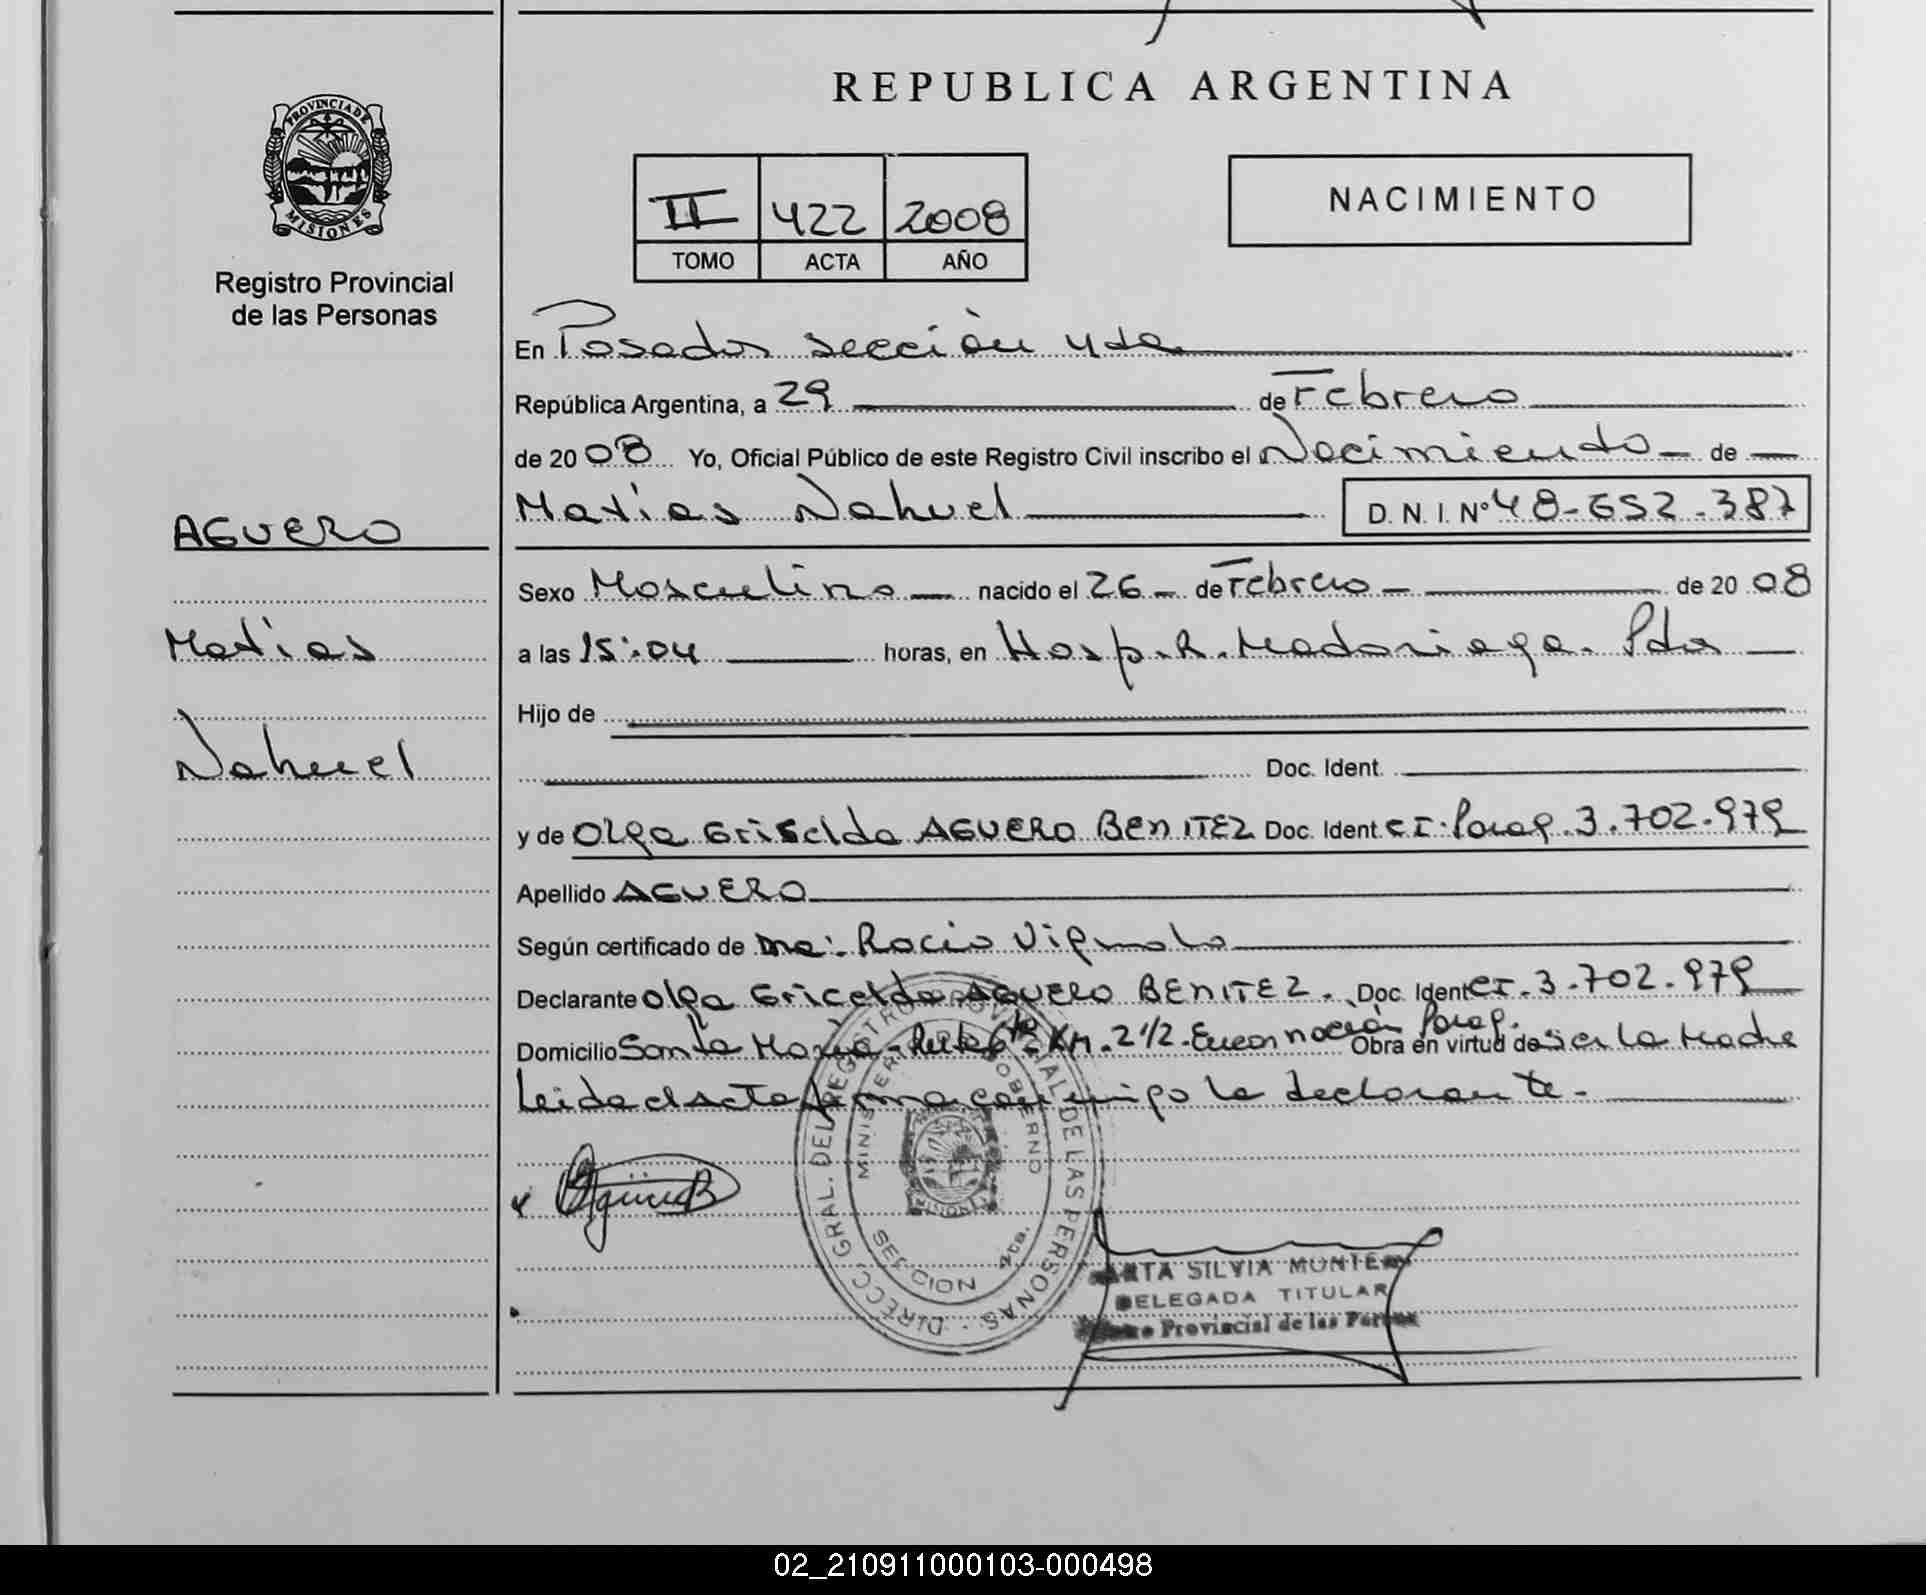 REPUBLICA ARGENTINA
PROVINCIA DE
MISIONES
Registro Provincial
de las Personas
II 422 2008
TOMO ACTA AÑO
NACIMIENTO
En Posadas sección 4ta
República Argentina, a 29 de Febrero
de 2008 Yo, Oficial Público de este Registro Civil inscribo el Nacimiento de
Matias Nahuel D.N.I. Nº 48-652.387
AGUERO
Matias
Nahuel
Sexo Masculino nacido el 26 de Febrero de 2008
a las 15:04 horas, en Hosp. R. Madariaga. Pdas
Hijo de
Doc. Ident.
y de Olga Griselda AGUERO BENITEZ Doc. Ident CI. Parag. 3.702.979
Apellido AGUERO
Según certificado de Rocio Vignolo
Declarante Olga Gricelda AGUERO BENITEZ. Doc. Ident CI. 3.702.979
Domicilio Santa Maria Ruta 6ta KM. 2 1/2. Encarnación Parag. Obra en virtud de ser la Madre
Leida el acta firma conmigo la declarante.
DIRECC. GRAL. DEL REGISTRO PROVINCIAL DE LAS PERSONAS
MINISTERIO GOBIERNO
MISIONES
SECCION 4ta.
SILVIA
DELEGADA TITULAR
Provincial de las
02_210911000103-000498